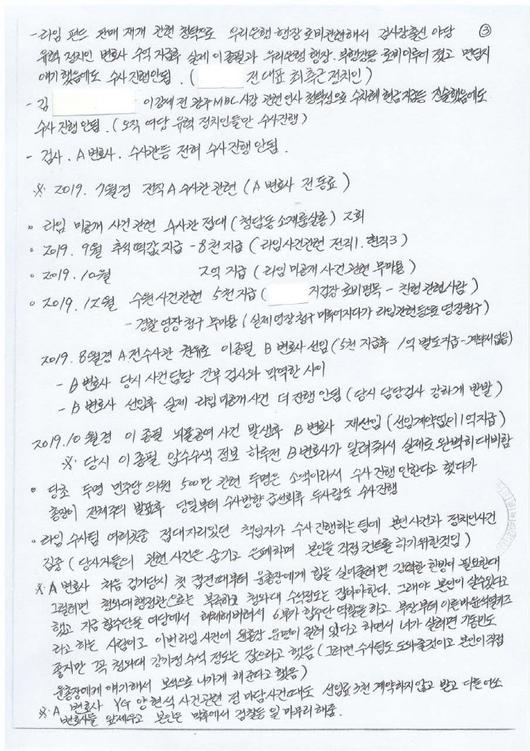 ③
- 라임 펀드 판매 재개 관련 청탁으로 우리은행 행장 로비관련해서 검사장출신 야당
유력 정치인 변호사 수억 지급후 실제 이종필과 우리은행 행장. 부행장등 로비이루어 졌고 면담시
얘기했음에도 수사진행안됨. ( 전 대표 최측근 정치인 )
- 김 이강세 전 광주MBC 사장 관련 인사 청탁성으로 수차례 현금 지급등 진술했음에도
수사 진행 안됨. (오직 여당 유력 정치인들만 수사진행)
- 검사. A변호사. 수사관등 전혀 수사진행 안됨.
※ 2019. 7월경 전직 A수사관 관련 ( A변호사 전 동료 )
○ 라임 미공개 사건 관련 수사관 접대 ( 청담동 소재룸살롱 ) 2회
○ 2019. 9월 추석 떡값지급 - 8천지급 ( 라임사건관련 전직1. 현직3 )
○ 2019. 10월 2억 지급 ( 라임 미공개 사건관련 무마용 )
○ 2019. 12월 수원사건관련 5천 지급 ( 지검장 로비명목 - 친형 관련사람 )
- 경찰 영장 청구 무마용 ( 실제 영장 청구 미뤄지다가 라임관련등으로 영장청구 )
2019. 8월경 A전수사관 이종필 B변호사 선임 ( 5천 지급후 1억 별도지급 - 계약서없음 )
- B변호사 당시 사건담당 간부 검사와 막역한 사이
- B변호사 선임후 실제 라임 미공개사건 더 진행 안됨 ( 당시 담당검사 강하게 반발 )
2019. 10월경 이종필 뇌물공여 사건 발생후 B변호사 재선임 ( 선임계약없이 1억지급 )
※. 당시 이종필 압수수색 정보 하루전 B변호사가 알려줘서 실제로 완벽히 대비함
○ 당초 두명 민주당 의원 500만 관련 두명은 소액이라서 수사진행 안한다고 했다가
총장이 전체주의 발표후 당일부터 수사방향 급선회후 두사람도 수사진행
○ 라임 수사팀 여러것중 접대자리있던 책임자가 수사 진행하는 팀에 본인사건과 정치인사건
집중 ( 당사자들의 관련 사건은 숨기고 은폐하며 본인을 직접 컨트롤 하기위한것임 )
※. A변호사 처음 검거당시 첫 접견때부터 윤총장에게 힘을 실어줄려면 강력한 한방이 필요한데
그럴려면 청와대 행정관으로는 부족하고 청와대 수석정도는 잡아야한다. 그래야 본인이 살수있다고
했고 지금 합수단을 여당에서 해체해버려서 6부가 합수단 역할을 하고 부장부터 이른바 윤석열키즈
라고 하는 사람이고 이번 라임사건에 윤총장 운명이 걸려 있다고 하면서 내가 살려면 기동민도
좋지만 꼭 청와대 강기정 수석 정도는 잡으라고 했음 ( 그러면 수사팀도 도와줄것이고 본인이 직접
윤총장에게 얘기해서 보석으로 나가게 해준다고 했음 )
※. A변호사 YG 양현석 사건관련 정마담사건때도 선임료 3천 계약하지않고 받고 다른 여성
변호사를 앞세우고 본인은 막후에서 검찰등 일 마무리해줌.